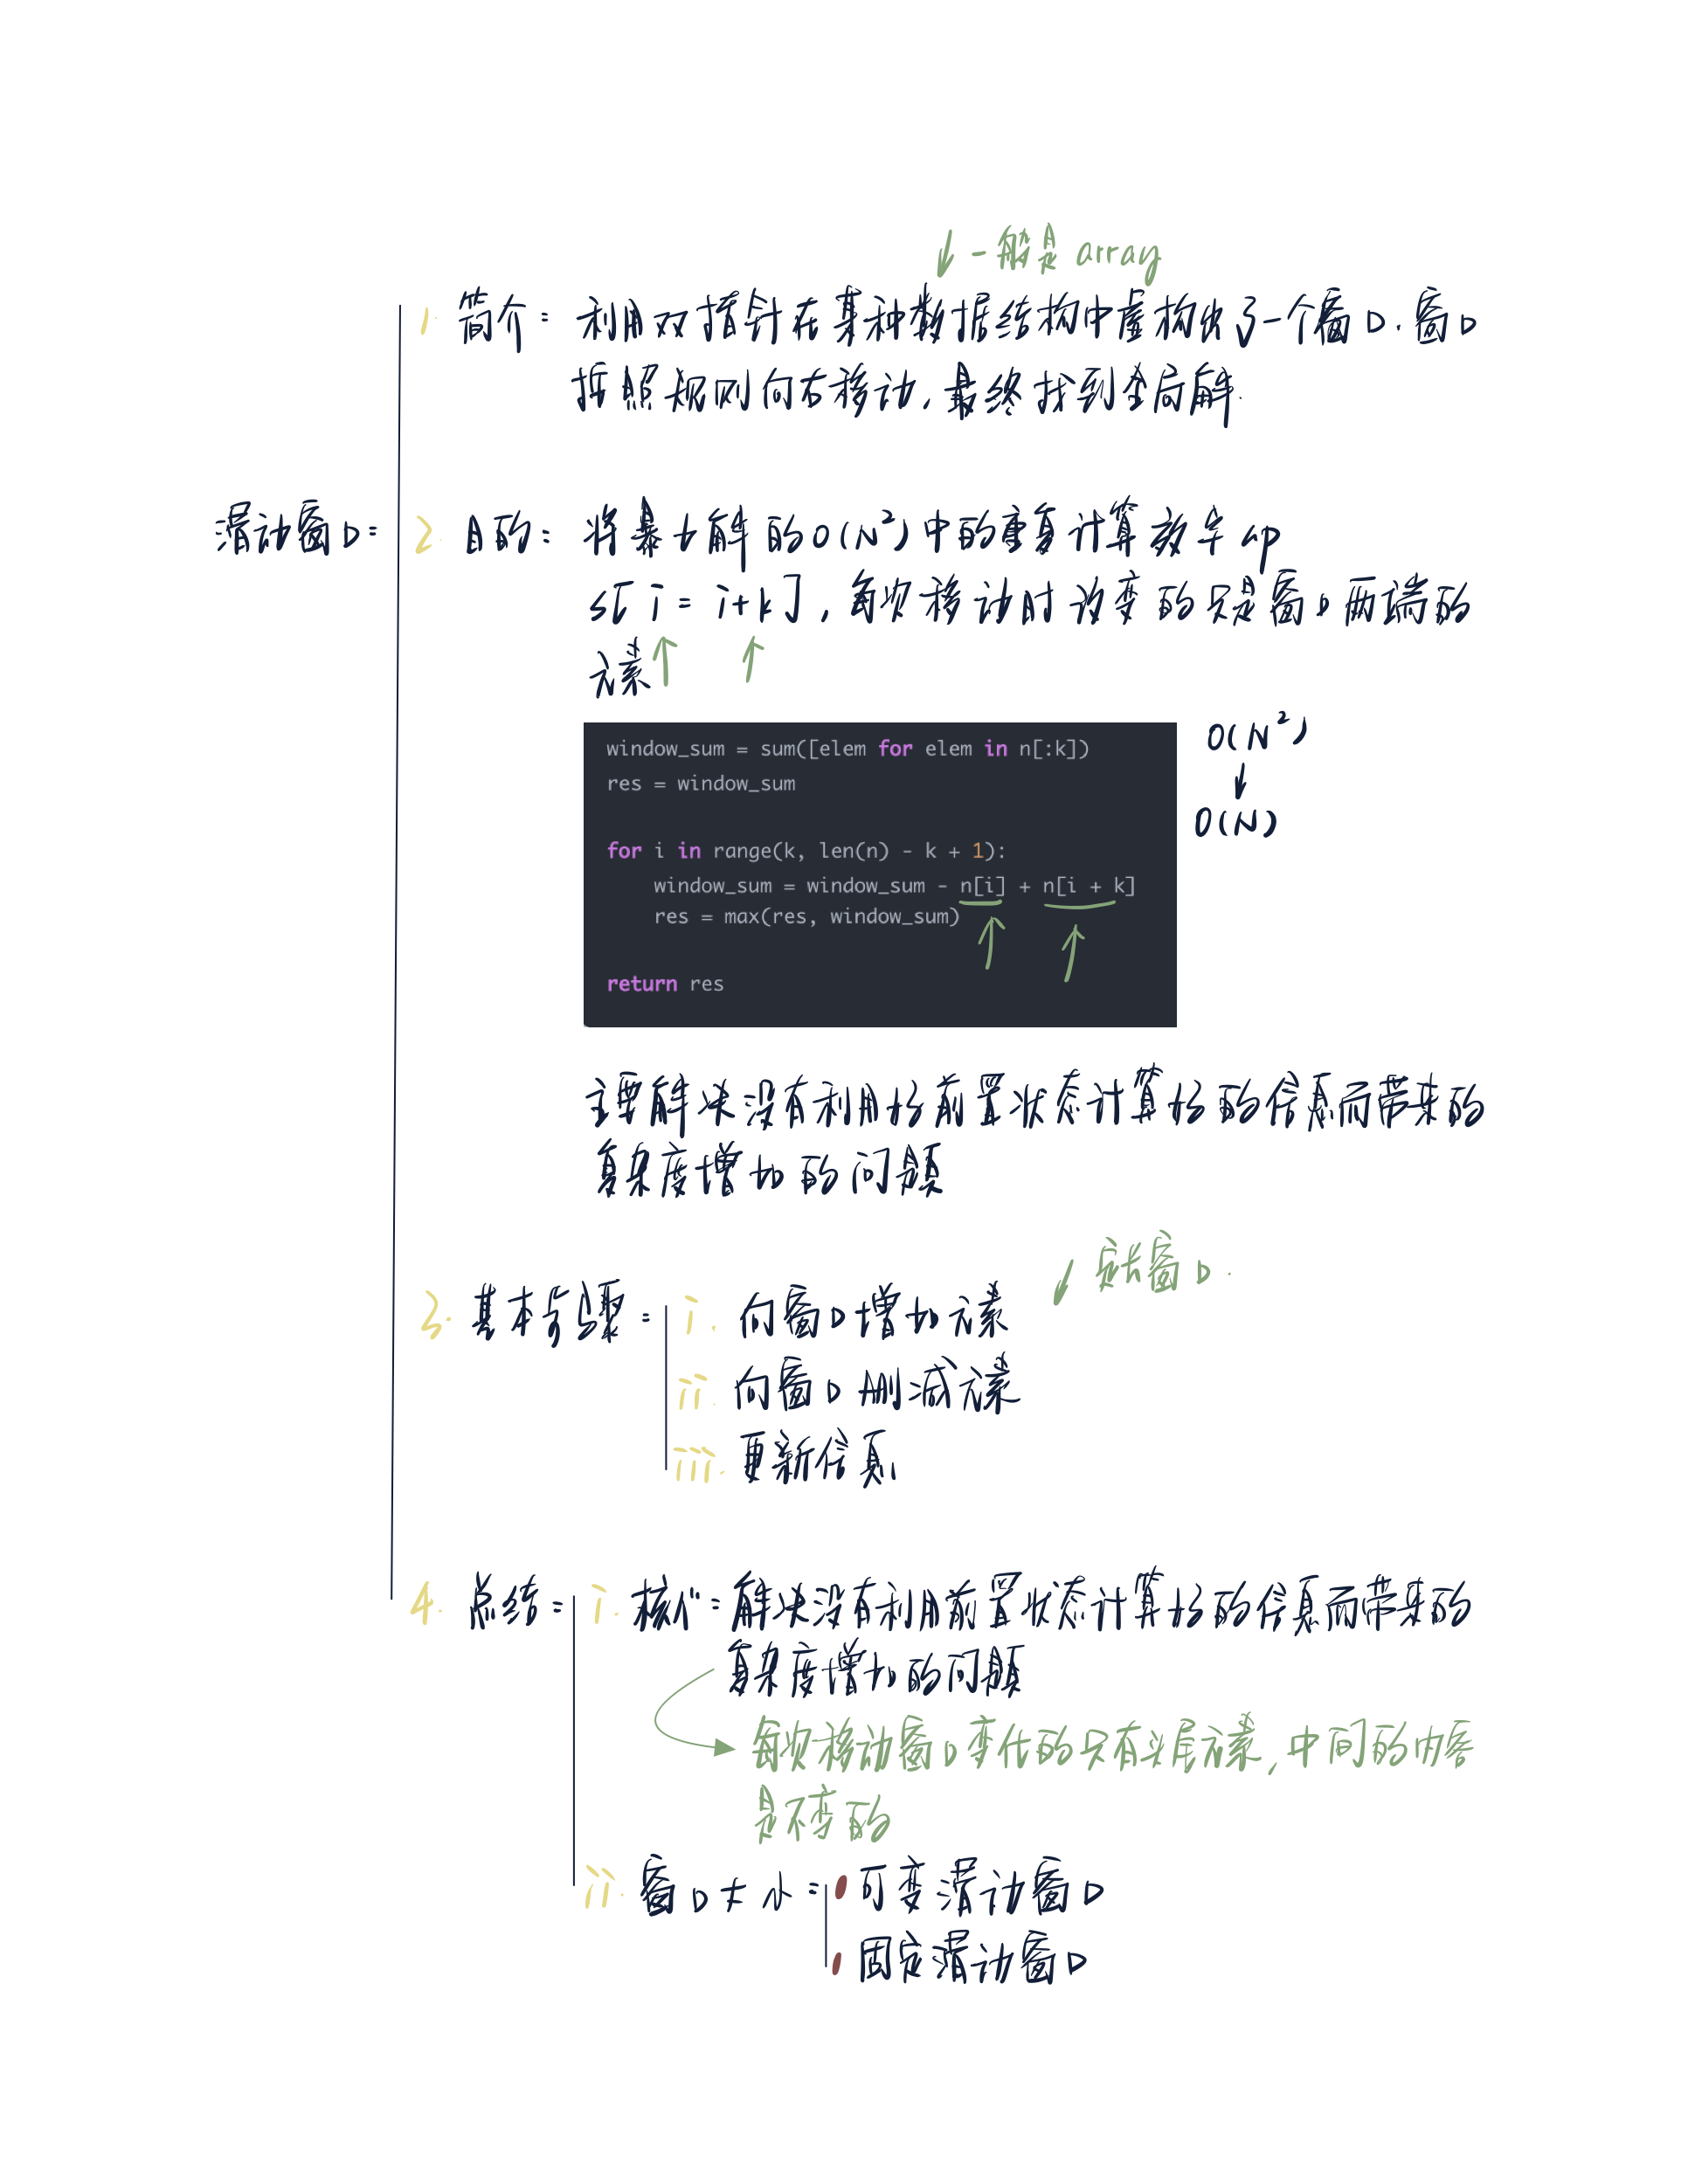 一般是 array
1. 简介: 利用双指针在某种数据结构中虚构出了一个窗口. 窗口
按照规则向右移动, 最终找到全局解.
滑动窗口:
2. 目的: 将暴力解的O(N²)中的重复计算效率up
s[i = i+k], 每次移动时改变的只是窗口两端的
元素
window_sum = sum([elem for elem in n[:k]])
res = window_sum
for i in range(k, len(n) - k + 1):
window_sum = window_sum - n[i] + n[i + k]
res = max(res, window_sum)
return res
O(N²)
↓
O(N)
主要解决没有利用好前置状态计算好的信息而带来的
复杂度增加的问题
定长窗口.
3. 基本步骤: i. 向窗口增加元素
ii. 向窗口删减元素
iii. 更新信息
4. 总结: i. 核心: 解决没有利用前置状态计算好的信息而带来的
复杂度增加的问题
每次移动窗口变化的只有头尾元素, 中间的内容
是不变的
ii. 窗口大小: 可变滑动窗口
固定滑动窗口